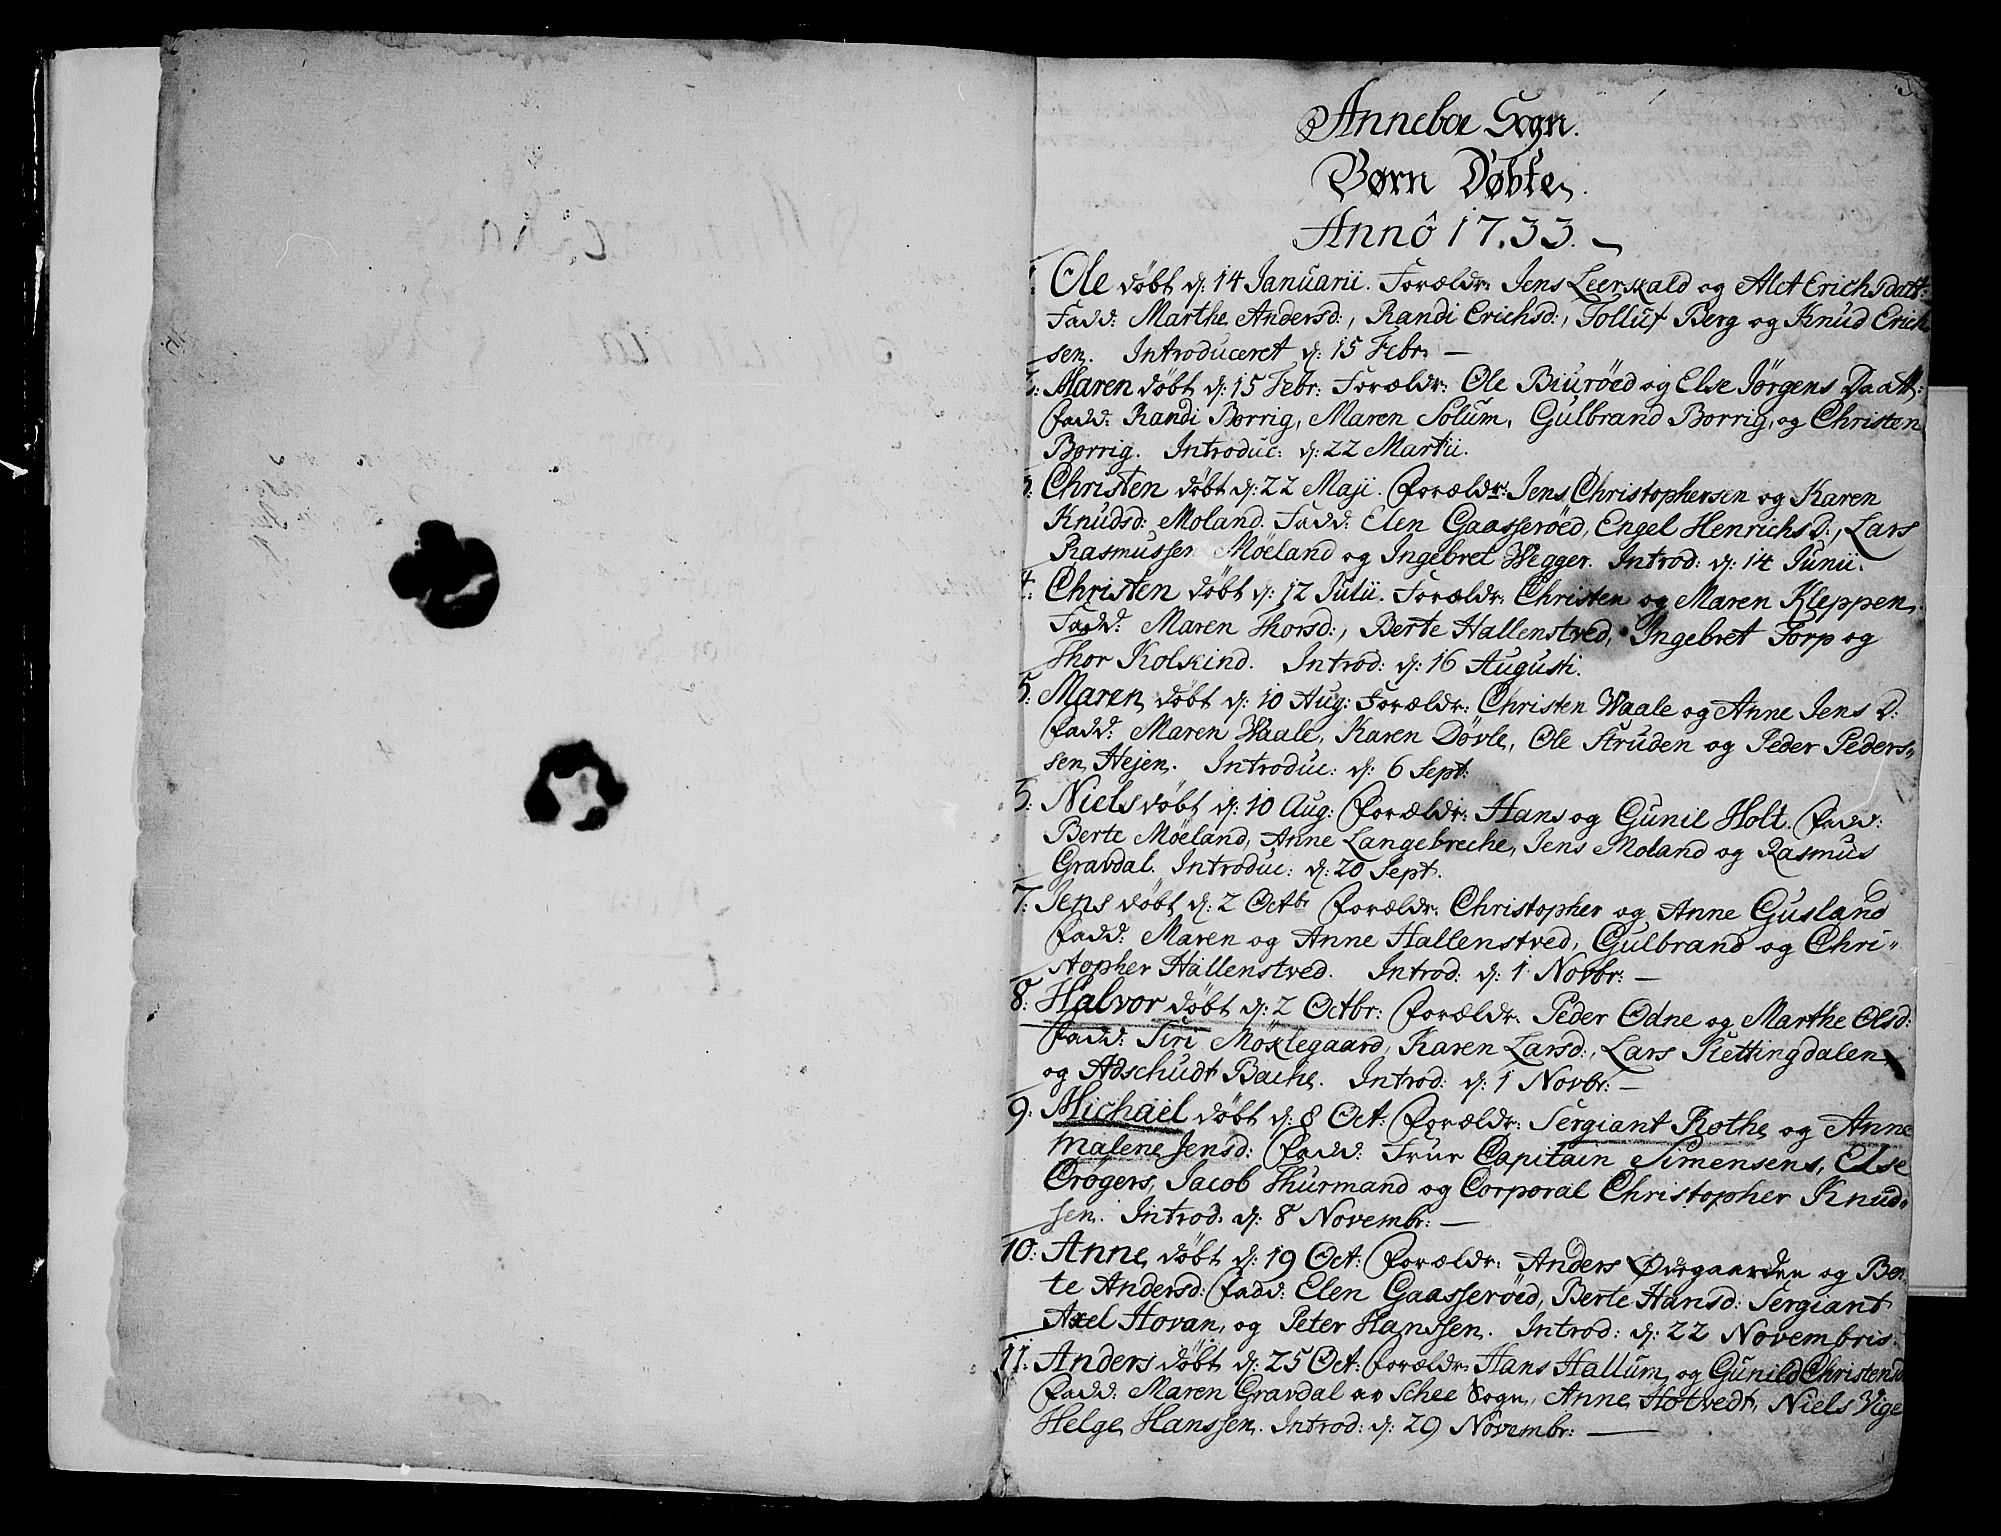 Anneboe Sogn.
Børn Døbte.
Annô 1733.
1: Ole døbt d: 14 Januarii. Forældr: Jens Leerskald og Alet Erichsdatt:
Fadd: Marthe Andersd:, Randi Erichsd:, Tolluf Berg og Knud Erich
sen. Introduceret d: 15 Febr: —
2: Maren døbt d: 15 Febr: Forældr: Ole Biurøed og Else Jørgens Daatt:
Fadd: Randi Borrig, Maren Solum, Gulbrand Borrig, og Christen
Borrig. Introduc: d: 22 Martii.
3: Christen døbt d: 22 Maji. Forældr: Jens Christophersen og Karen
Knudsd: Moland. Fadd: Elen Gaasserøed, Engel Henrichsd:, Lars
Rasmussen Møeland og Ingebret Wegger. Introd: d: 14 Junii.
4: Christen døbt d: 12 Julii. Forældr: Christen og Maren Kleppen.
Fadd: Maren Thorsd:, Berte Hallenstved, Ingebret Torp og
Thor Kolkind. Introd: d: 16 Augusti.
5: Maren døbt d: 10 Aug: Forældr: Christen Waale og Anne Jens D:
Fadd: Maren Waale, Karen Døvle, Ole Struden og Peder Peders-
sen Hejen. Introduc: d: 6 Sept:
5: Niels døbt d: 10 Aug: Forældr: Hans og Gunil Holt. Fadd:
Berte Møeland, Anne Langebreche, Jens Moland og Rasmus
Gravdal. Introduc: d: 20 Sept.
7: Jens døbt d: 2 Octbr Forældr: Christopher og Anne Gusland
Fadd: Maren og Anne Hallenstved, Gulbrand og Chri-
stopher Hallenstved. Introd: d: 1 Novbr: —
8: Halvor døbt d: 2 Octbr: Forældr: Peder Odne og Marthe Olsd:
Fadd: Siri Møklegaard, Karen Larsd:, Lars Slettingdalen
og Adschudt Bache. Introd: d: 1 Novbr: —
9: Michael døbt d: 8 Oct: Forældr: Sergiant Rothe og Anne
Malene Jensd: Fadd: Frue Capitain Simensens, Else
Crøgers, Jacob Thurmand og Corporal Christopher Knud-
sen. Introd: d: 8 Novembr: —
10: Anne døbt d: 19 Oct: Forældr: Anders Øvegaarden og Ber-
te Andersd: Fadd: Elen Gaasserøed, Berte Hansd: Sergiant
Axel Hovan, og Peter Hanssen. Introd: d: 22 Novembris.
11: Anders døbt d: 25 Oct: Forældr: Hans Hallum og Gunild Christensd
Fadd: Maren Gravdal av Schee Sogn, Anne Hotvedt, Niels Vige
Helge Hanssen. Introd: d: 29 Novembr: —